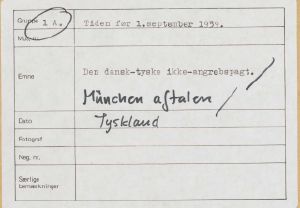 Gruppe 1 A. Tiden før 1.september 1939.
Mus. nr.
Emne Den dansk-tyske ikke-angrebspagt.
München aftalen
Dato Tyskland
Fotograf
Neg. nr.
Særlige
bemærkninger